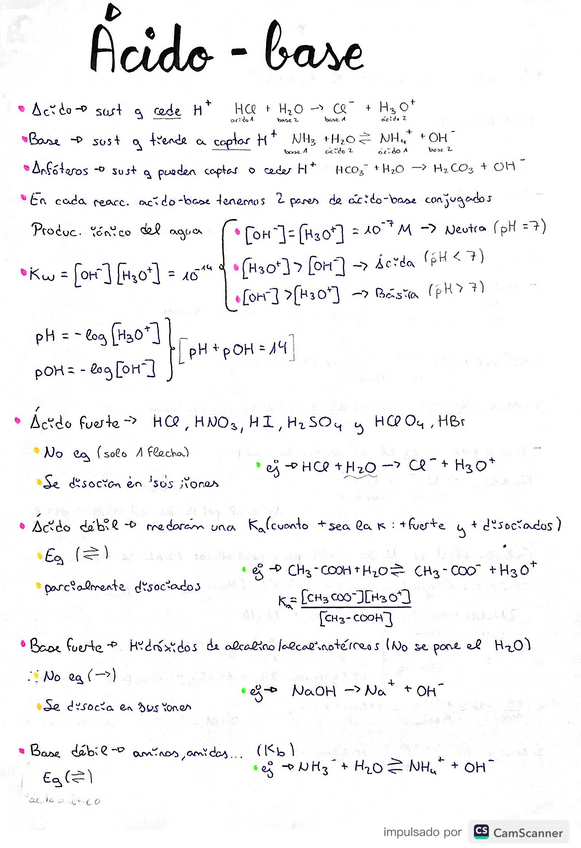 Ácido - base
• Ácido → sust q cede H⁺ HCl + H₂O → Cl⁻ + H₃O⁺
ácido 1 base 2 base 1 ácido 2
• Base → sust q tiende a captar H⁺ NH₃ + H₂O ⇌ NH₄⁺ + OH⁻
base 1 ácido 2 ácido 1 base 2
• Anfóteros → sust q pueden captar o ceder H⁺ HCO₃⁻ + H₂O → H₂CO₃ + OH⁻
• En cada reacc. ácido-base tenemos 2 pares de ácido-base conjugados
Produc. iónico del agua
• [OH⁻] = [H₃O⁺] = 10⁻⁷ M → Neutra (pH = 7)
• Kw = [OH⁻] [H₃O⁺] = 10⁻¹⁴
• [H₃O⁺] > [OH⁻] → Ácida (pH < 7)
• [OH⁻] > [H₃O⁺] → Básica (pH > 7)
pH = - log [H₃O⁺]
[pH + pOH = 14]
pOH = - log [OH⁻]
• Ácido fuerte → HCl, HNO₃, HI, H₂SO₄ y HClO₄, HBr
• No eq (solo 1 flecha)
• ej → HCl + H₂O → Cl⁻ + H₃O⁺
• Se disocian en sus iones
• Ácido débil → me darán una Ka (cuanto + sea la K : + fuerte y + disociados)
• Eq (⇌)
• ej → CH₃-COOH + H₂O ⇌ CH₃-COO⁻ + H₃O⁺
• parcialmente disociados
Ka = [CH₃COO⁻][H₃O⁺]
[CH₃-COOH]
• Base fuerte → Hidróxidos de alcalino/alcalinotérreos (No se pone el H₂O)
• No eq (→)
• ej → NaOH → Na⁺ + OH⁻
• Se disocia en sus iones
• Base débil → aminas, amidas... (Kb)
• ej → NH₃⁻ + H₂O ⇌ NH₄⁺ + OH⁻
Eq (⇌)
impulsado por CS CamScanner